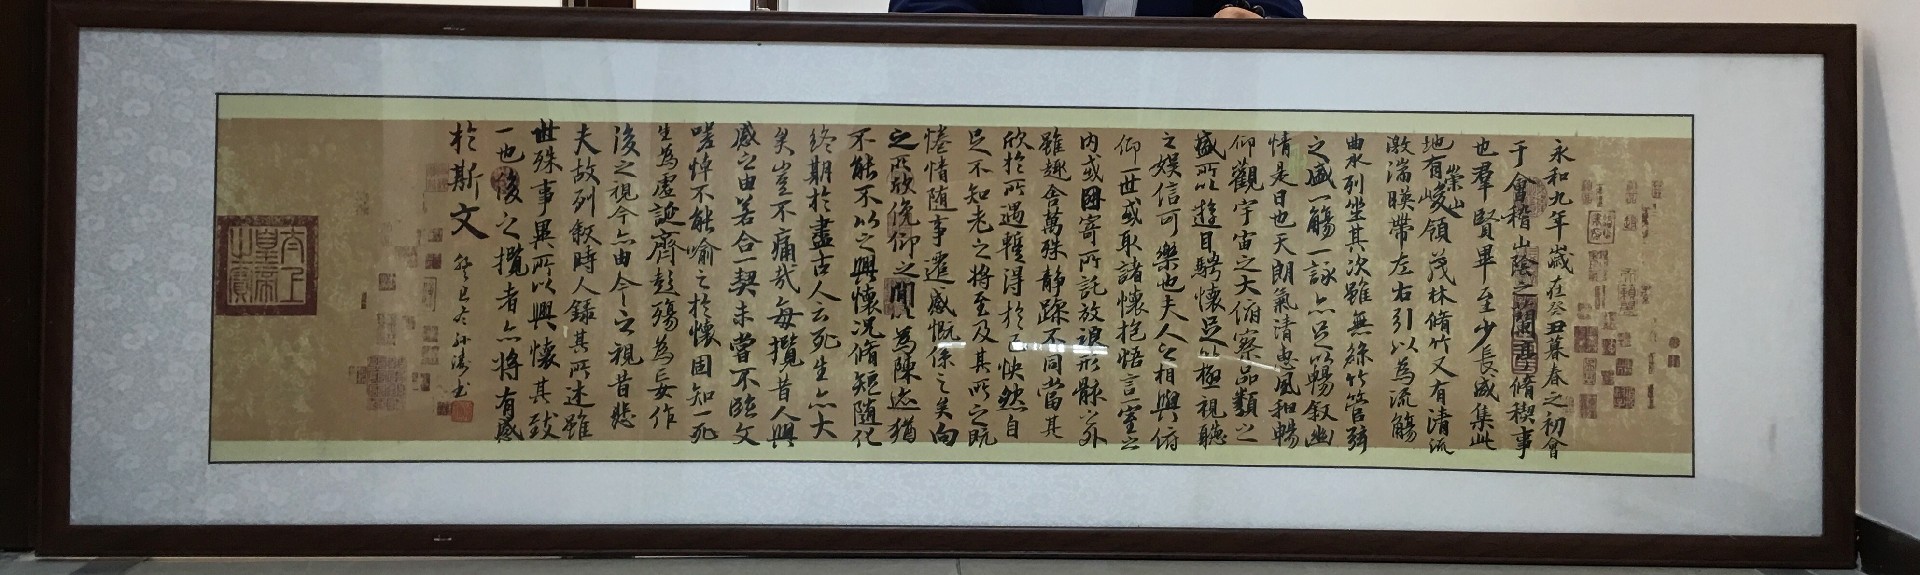 永和九年歲在癸丑暮春之初會
于會稽山陰之蘭亭脩稧事
也羣賢畢至少長咸集此
地有崇山峻領茂林脩竹又有清流
激湍暎帶左右引以為流觴
曲水列坐其次雖無絲竹管弦
之盛一觴一詠亦足以暢叙幽
情是日也天朗氣清惠風和暢
仰觀宇宙之大俯察品類之
盛所以遊目騁懷足以極視聽
之娛信可樂也夫人之相與俯
仰一世或取諸懷抱悟言一室之
內或因寄所託放浪形骸之外
雖趣舍萬殊静躁不同當其
欣於所遇輙得於己快然自
足不知老之將至及其所之既
惓情隨事遷感慨係之矣向
之所欣俛仰之閒以為陳迹猶
不能不以之興懷況脩短隨化
終期於盡古人云死生亦大
矣豈不痛哉每攬昔人興
感之由若合一契未嘗不臨文
嗟悼不能喻之於懷固知一死
生為虛誕齊彭殤為妄作
後之視今亦由今之視昔悲
夫故列叙時人錄其所述雖
世殊事異所以興懷其致
一也後之攬者亦將有感
於斯文
太上皇帝之寶